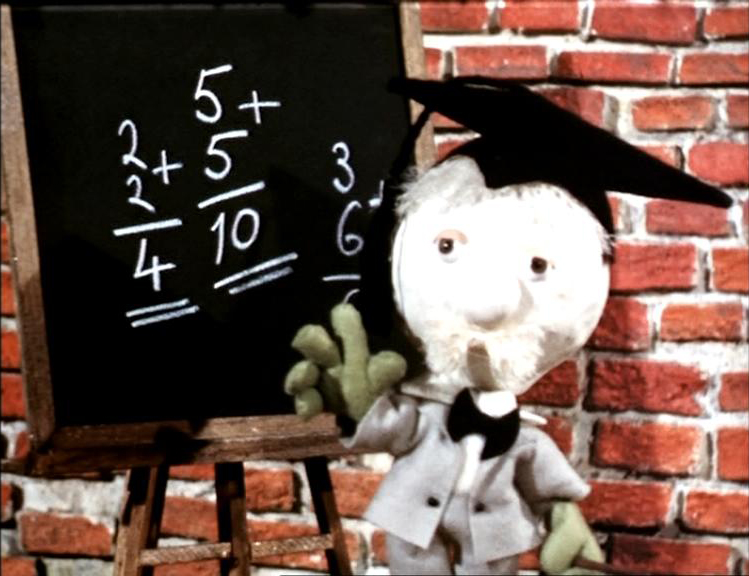 2
2 +
4
5 +
5
10
3
6 +